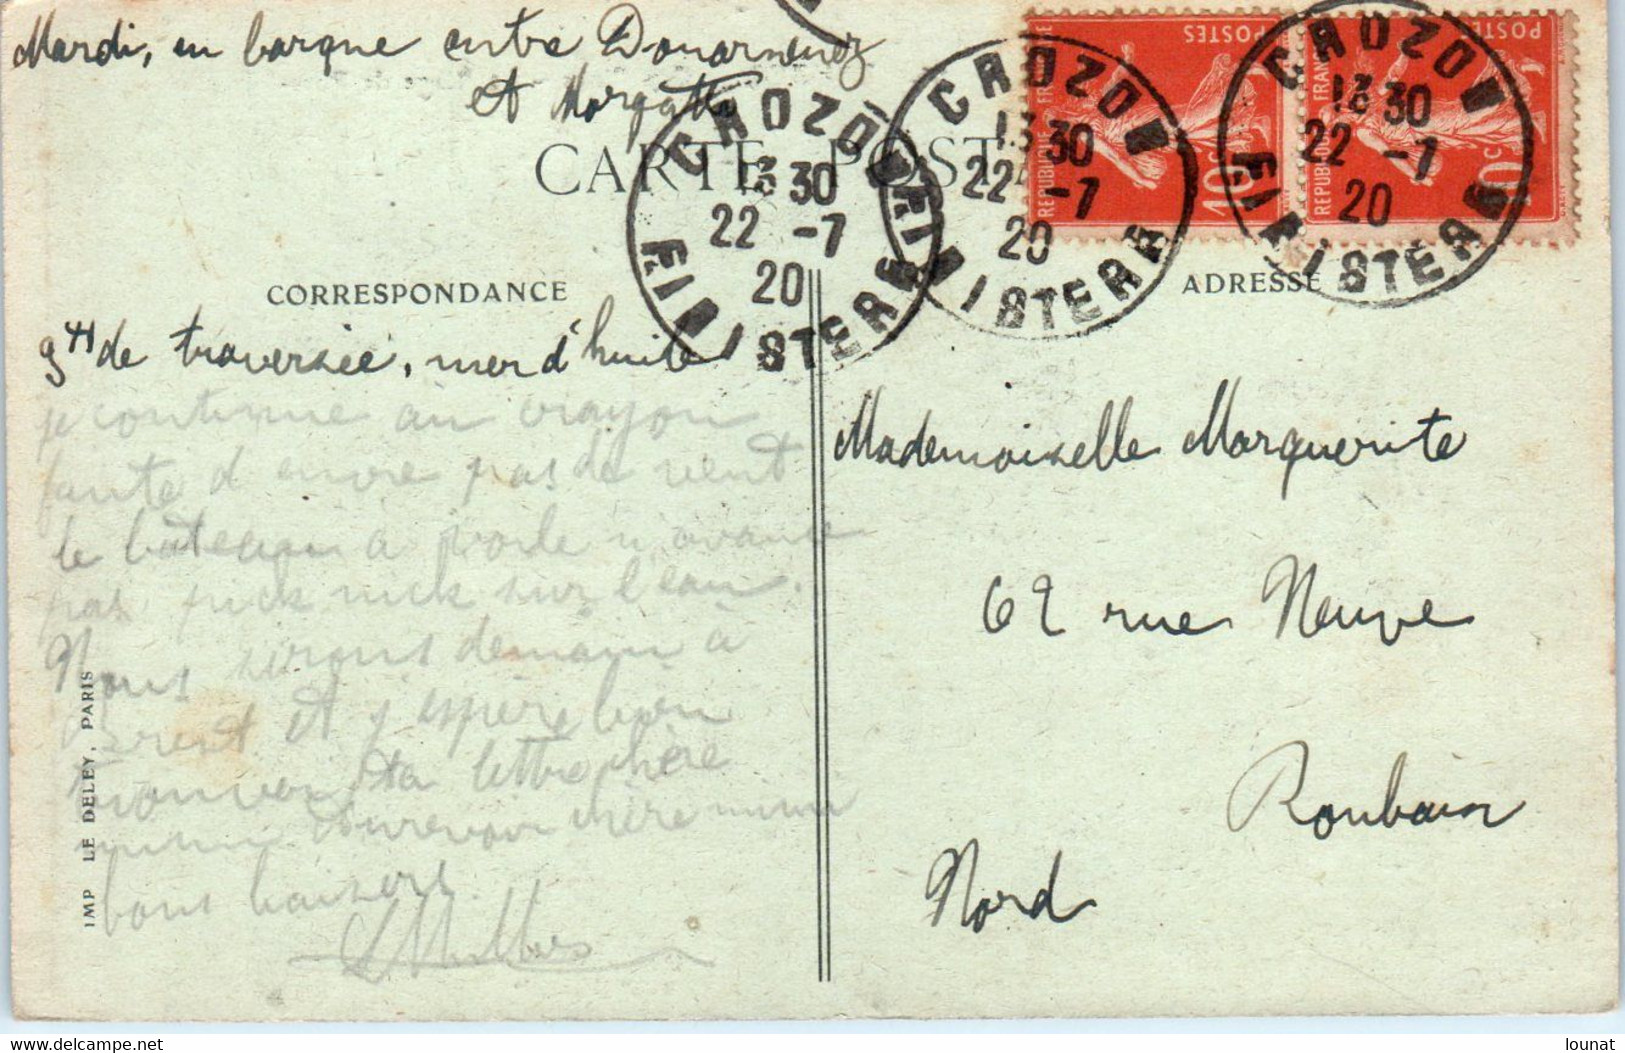 Mardi, en barque entre Douarnenez
et Morgatte
CARTE POST
CORRESPONDANCE
ADRESSE
CROZON
13 30
22 -7
20
FINISTERE
CROZON
13 30
22 -7
20
FINISTERE
CROZON
13 30
22 -7
20
FINISTERE
POSTES
REPUBLIQUE FRANÇAISE
10c
POSTES
REPUBLIQUE FRANC
10c
de traversée, mer d'huile
je continue au crayon
faute d'encre pas de vent
le bâteau à voile n'avance
pas, pick nick sur l'eau.
Nous serons demain à
Brest et j'y espère bien
trouver ta lettre chère
aurevoir chère
bons baisers.
Mademoiselle Marguerite
62 rue Neuve
Roubaix
Nord
IMP LE DELEY, PARIS
lounat